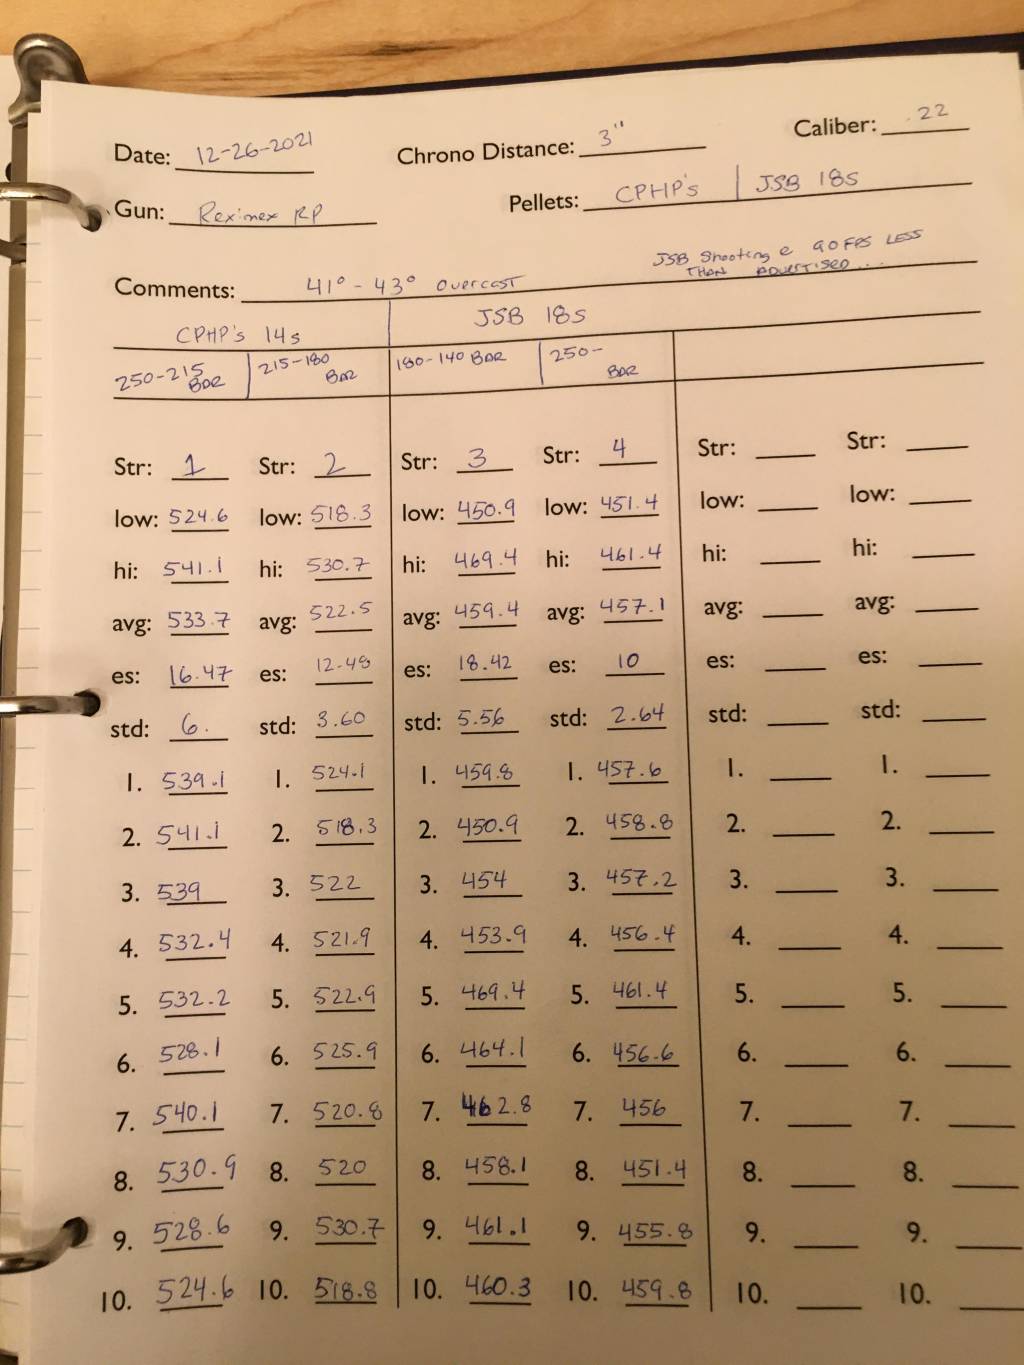 Date: 12-26-2021 Chrono Distance: 3" Caliber: .22
Gun: Reximex RP Pellets: CPHP's | JSB 18s
JSB Shooting @ 90 FPS LESS
THAN ADVERTISED...
Comments: 41° - 43° overcast
CPHP's 14s JSB 18s
250-215 BAR 215-180 BAR 180-140 BAR 250- BAR
Str: 1 Str: 2 Str: 3 Str: 4 Str: Str:
low: 524.6 low: 518.3 low: 450.9 low: 451.4 low: low:
hi: 541.1 hi: 530.7 hi: 469.4 hi: 461.4 hi: hi:
avg: 533.7 avg: 522.5 avg: 459.4 avg: 457.1 avg: avg:
es: 16.47 es: 12.48 es: 18.42 es: 10 es: es:
std: 6. std: 3.60 std: 5.56 std: 2.64 std: std:
1. 539.1 1. 524.1 1. 459.8 1. 457.6 1. 1.
2. 541.1 2. 518.3 2. 450.9 2. 458.8 2. 2.
3. 539 3. 522 3. 454 3. 457.2 3. 3.
4. 532.4 4. 521.9 4. 453.9 4. 456.4 4. 4.
5. 532.2 5. 522.9 5. 469.4 5. 461.4 5. 5.
6. 528.1 6. 525.9 6. 464.1 6. 456.6 6. 6.
7. 540.1 7. 520.8 7. 462.8 7. 456 7. 7.
8. 530.9 8. 520 8. 458.1 8. 451.4 8. 8.
9. 528.6 9. 530.7 9. 461.1 9. 455.8 9. 9.
10. 524.6 10. 518.8 10. 460.3 10. 459.8 10. 10.